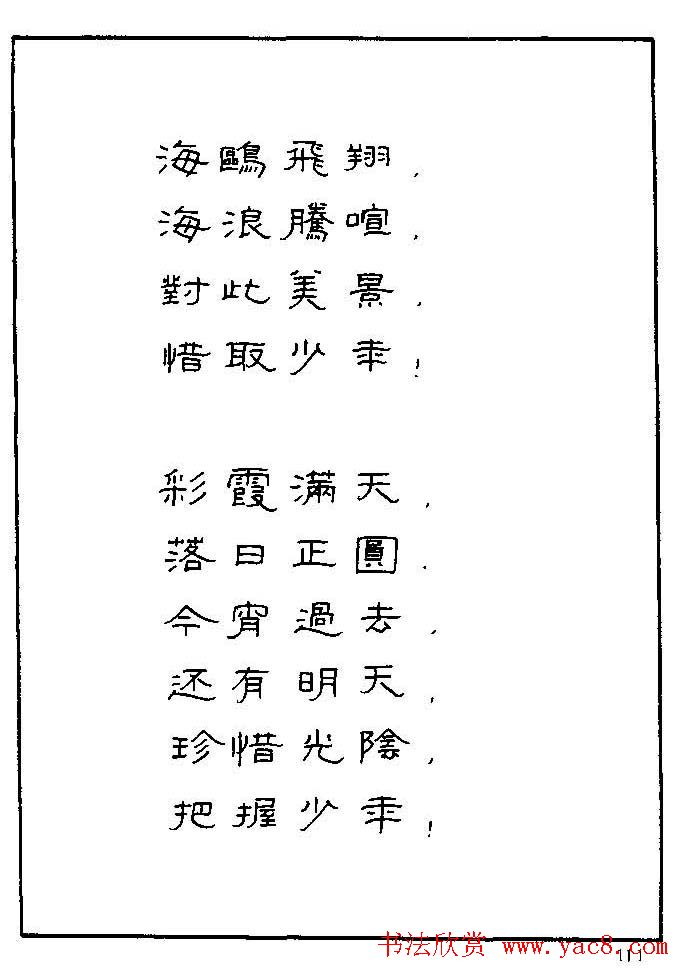 海鷗飛翔，
海浪騰喧，
對此美景，
惜取少年！
彩霞滿天，
落日正圓．
今宵過去，
还有明天，
珍惜光陰，
把握少年！
书法欣赏 www.yac8.com
111